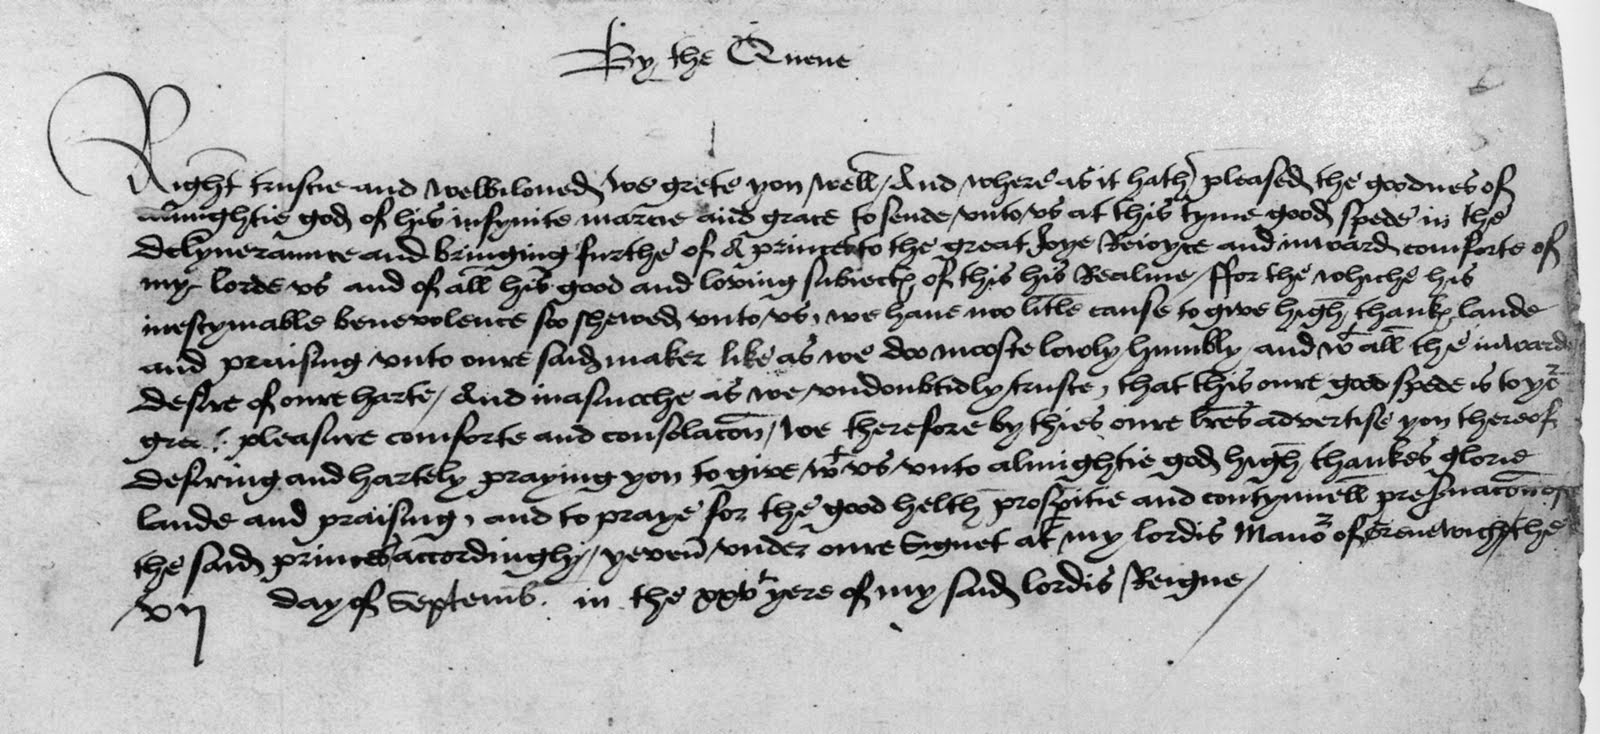 By the Quene
Right trustie and welbiloved, we grete you well, And where as it hath pleased the goodnes of
almightie god of his infynite marcie and grace to sende unto us at this tyme good spede in the
delyveraunce and bringing furthe of a princes to the great Joye Rejoyce and inward comforte of
my lorde us and of all his good and loving subiectes of this his Realme, ffor the whiche his
inestymable benevolence soo shewed unto us, we have noo litle cause to give high thankes laude
and praising unto oure said maker like as we doo mooste lowly humbly and wt all the inwarde
desire of oure harte, And inasmuche as we undoubtidly truste, that this oure good spede is to yor
great pleasure comforte and consolacon, We therefore by thies oure lres advertise you thereof
desiring and hartely praying you to give wt us unto almightie god high thankes glorie
laude and praising, and to praye for the good helth prosperitie and contynuell preservacon of
the said princes accordingly, yeven under oure Signet at my lordis Manor of Grenewich the
vij day of Septemb. in the xxvti yere of my said lordis Reigne,